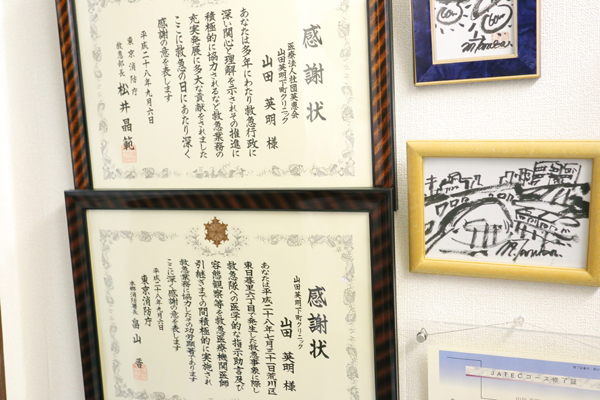 感謝状
医療法人社団英恵会
山田英明下町クリニック
山田 英明 様
あなたは多年にわたり救急行政に
深い関心と理解を示されその推進に
積極的に協力されるなど救急業務の
充実発展に多大な貢献をされました
ここに救急の日にあたり深く
感謝の意を表します
平成二十八年九月六日
東京消防庁
救急部長 松井晶範
感謝状
山田英明下町クリニック
山田 英明 様
あなたは平成二十八年七月三十一日荒川区
東日暮里六丁目で発生した救急事象に際し
救急隊への医学的な指示助言及び
容態観察等を救急医療機関医師
引継ぎまでの間積極的に実施され
救急業務に協力したその功労顕著であります
ここに深く感謝の意を表します
平成二十八年九月九日
東京消防庁
畠山 晋
JATECコース修了証